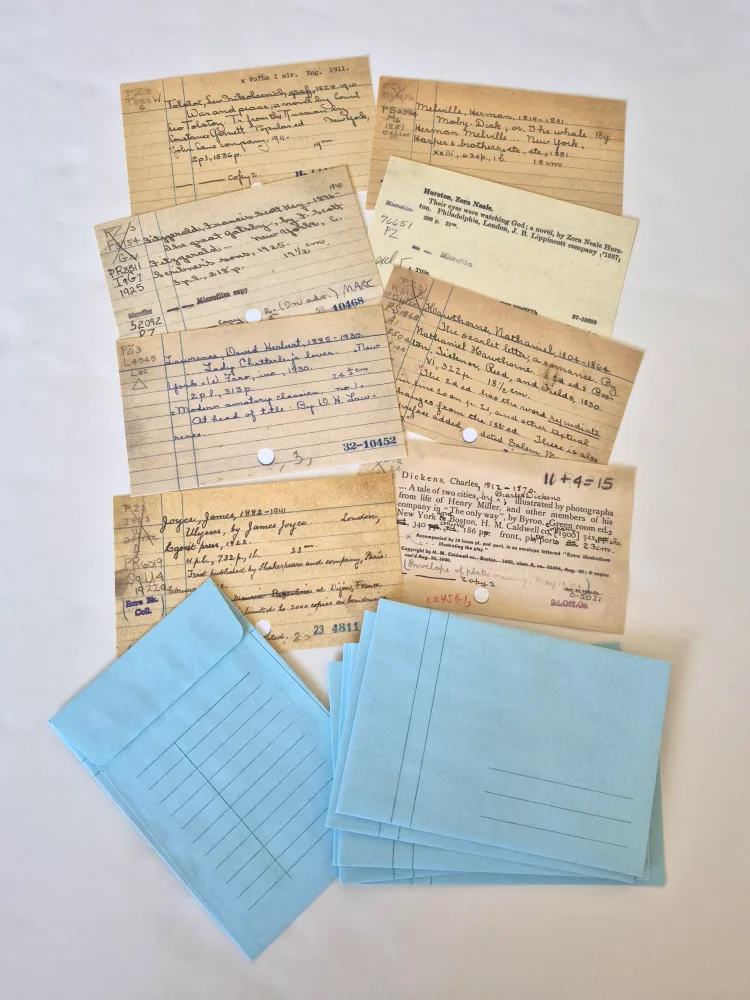 x Voĭna i mir. Eng. 1911.
PZ3
T588W
6
Tolstoy, Lev Nikolaevich, graf, 1828-1910
War and peace, a novel by Count
Leo Tolstoy; Tr. from the Russian by
Constance Garnett. Popular ed. New York,
John Lane company, 1911.
2 p.l., 1536 p. 19 cm.
copy 2.
PS2384
M6
1851
Melville, Herman, 1819-1891
Moby-Dick, or, The whale. By
Herman Melville. New York,
Harper & brothers, etc., etc., 1851.
xxiii, 634 p., 1 l. 19 cm.
PZ3
F5754
Gr
PR3511
I9G7
1925
Microfilm
52092
PZ
Fitzgerald, Francis Scott Key, 1896-
The great gatsby, by F. Scott
Fitzgerald... New York, C.
Scribner's sons, 1925.
3 p.l., 218 p. 19½ cm.
Microfilm copy
MARC
10468
Microfilm
76651
PZ
Hurston, Zora Neale.
Their eyes were watching God; a novel, by Zora Neale Hurs-
ton. Philadelphia, London, J. B. Lippincott company, [1937]
286 p. 21cm.
Microfilm
I. Title.
PZ3
L4345
Lac
Lawrence, David Herbert, 1885-1930.
Lady Chatterley's lover. New
York, W. Faro, inc., 1930.
2 p.l., 313 p. 24½ cm
Modern amatory classics. no. 1.
At head of title: By D. H. Law-
rence.
3,
32-10452
Hawthorne, Nathaniel, 1804-1864
The scarlet letter, a romance. By
Nathaniel Hawthorne. 2d ed. Bos-
ton, Ticknor, Reed, and Fields, 1850.
vi, 322 p. 18½ cm.
The 2d ed. has the word repudiate
in line 20 on p. 21, and other textual
changes from the 1st ed. There is also
preface added, dated Salem M
PZ3
PR6019
O9U4
1922a
(Rare Bk.
Coll.
Joyce, James, 1882-1941
Ulysses, by James Joyce. London,
Egoist press, 1922.
4 p.l., 732 p., 1 l. 23 cm.
First published by Shakespeare and company, Paris,
February
at Dijon, France.
limited to 2000 copies on handmade
23 4811
11+4=15
Dickens, Charles, 1812-1870.
... A tale of two cities, by Charles Dickens illustrated by photographs
from life of Henry Miller, and other members of his
company in "The only way", by Byron. Green room ed.
New York & Boston, H. M. Caldwell co. [1900]
340 186 pp. front., ports 23 cm.
Accompanied by 15 loose pl. and port. in an envelope lettered "Extra illustrations
illustrating the play."
Copyright by H. M. Caldwell co., Boston
(Envelope of plates missing, May
copy 2.
0-5021